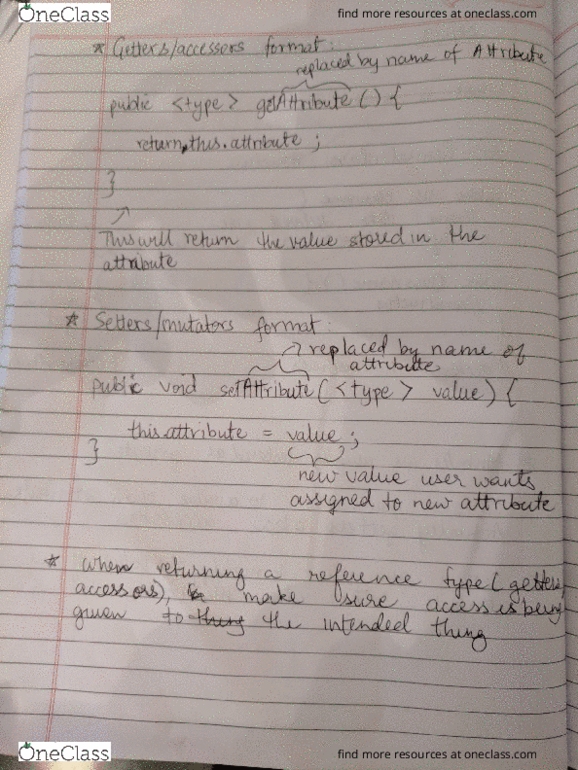 OneClass
find more resources at oneclass.com
* Getters/accessors format:
replaced by name of Attribute
public <type> getAttribute () {
return this.attribute ;
}
This will return the value stored in the
attribute
* Setters/mutators format:
replaced by name of
attribute
public void setAttribute (<type> value) {
this.attribute = value ;
}
new value user wants
assigned to new attribute
* when returning a reference type (getters/
accessors), make sure access is being
given to thing the intended thing
OneClass
find more resources at oneclass.com